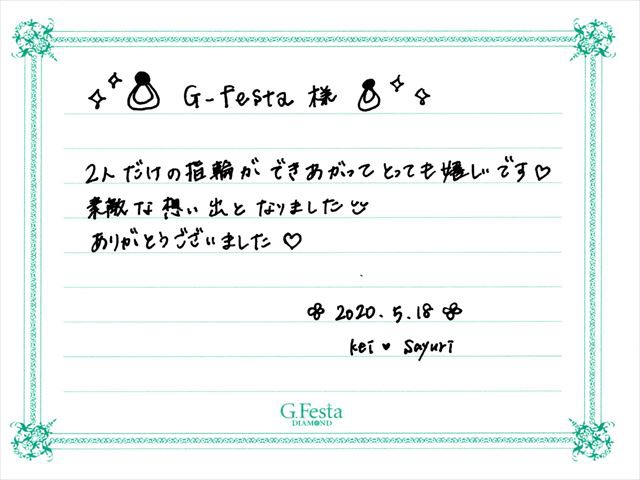 G-festa 様
2人だけの指輪ができあがってとっても嬉しいです♡
素敵な想い出となりました
ありがとうございました♡
2020.5.18
kei ♥ sayuri
G.Festa
DIAMOND